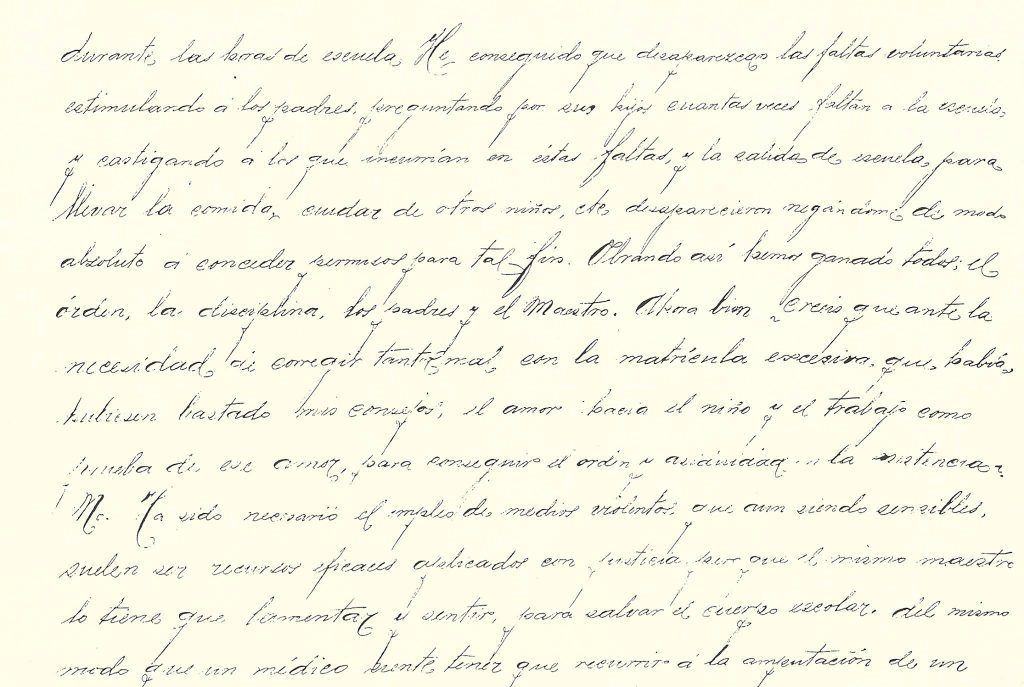 durante las horas de escuela. He conseguido que desaparezcan las faltas voluntarias
estimulando á los padres, preguntando por sus hijos cuantas veces faltan a la escuela,
y castigando á los que incurrían en éstas faltas, y la salida de escuela, para
llevar la comida, cuidar de otros niños, etc desaparecieron negándome de modo
absoluto á conceder permisos para tal fin. Obrando así hemos ganado todos; el
órden, la disciplina, los padres y el Maestro. Ahora bien ¿creeis que ante la
necesidad de corregir tanto mal, con la matrícula excesiva, que había,
hubiesen bastado mis consejos, el amor hacia el niño y el trabajo como
prueba de ese amor, para conseguir el orden y asiduidad en la asistencia?
No. Ha sido necesario el empleo de medios violentos que aun siendo sensibles,
suelen ser recursos eficaces aplicados con justicia por que el mismo maestro
lo tiene que lamentar y sentir, para salvar el cuerpo escolar. del mismo
modo que un médico siente tener que recurrir á la amputación de un